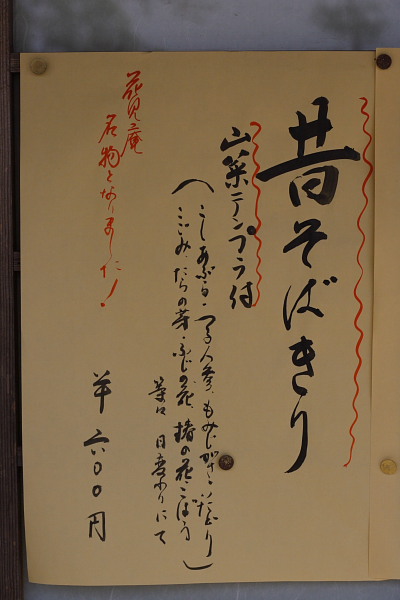 昔そばきり
山菜テンプラ付
(こしあぶら・つる人参・もみじがさ・いたどり
こごみ・たらの芽・ふじの花・椿の花・ごぼう
等は 日変わりにて)
六〇〇円
花見庵
名物となりました!